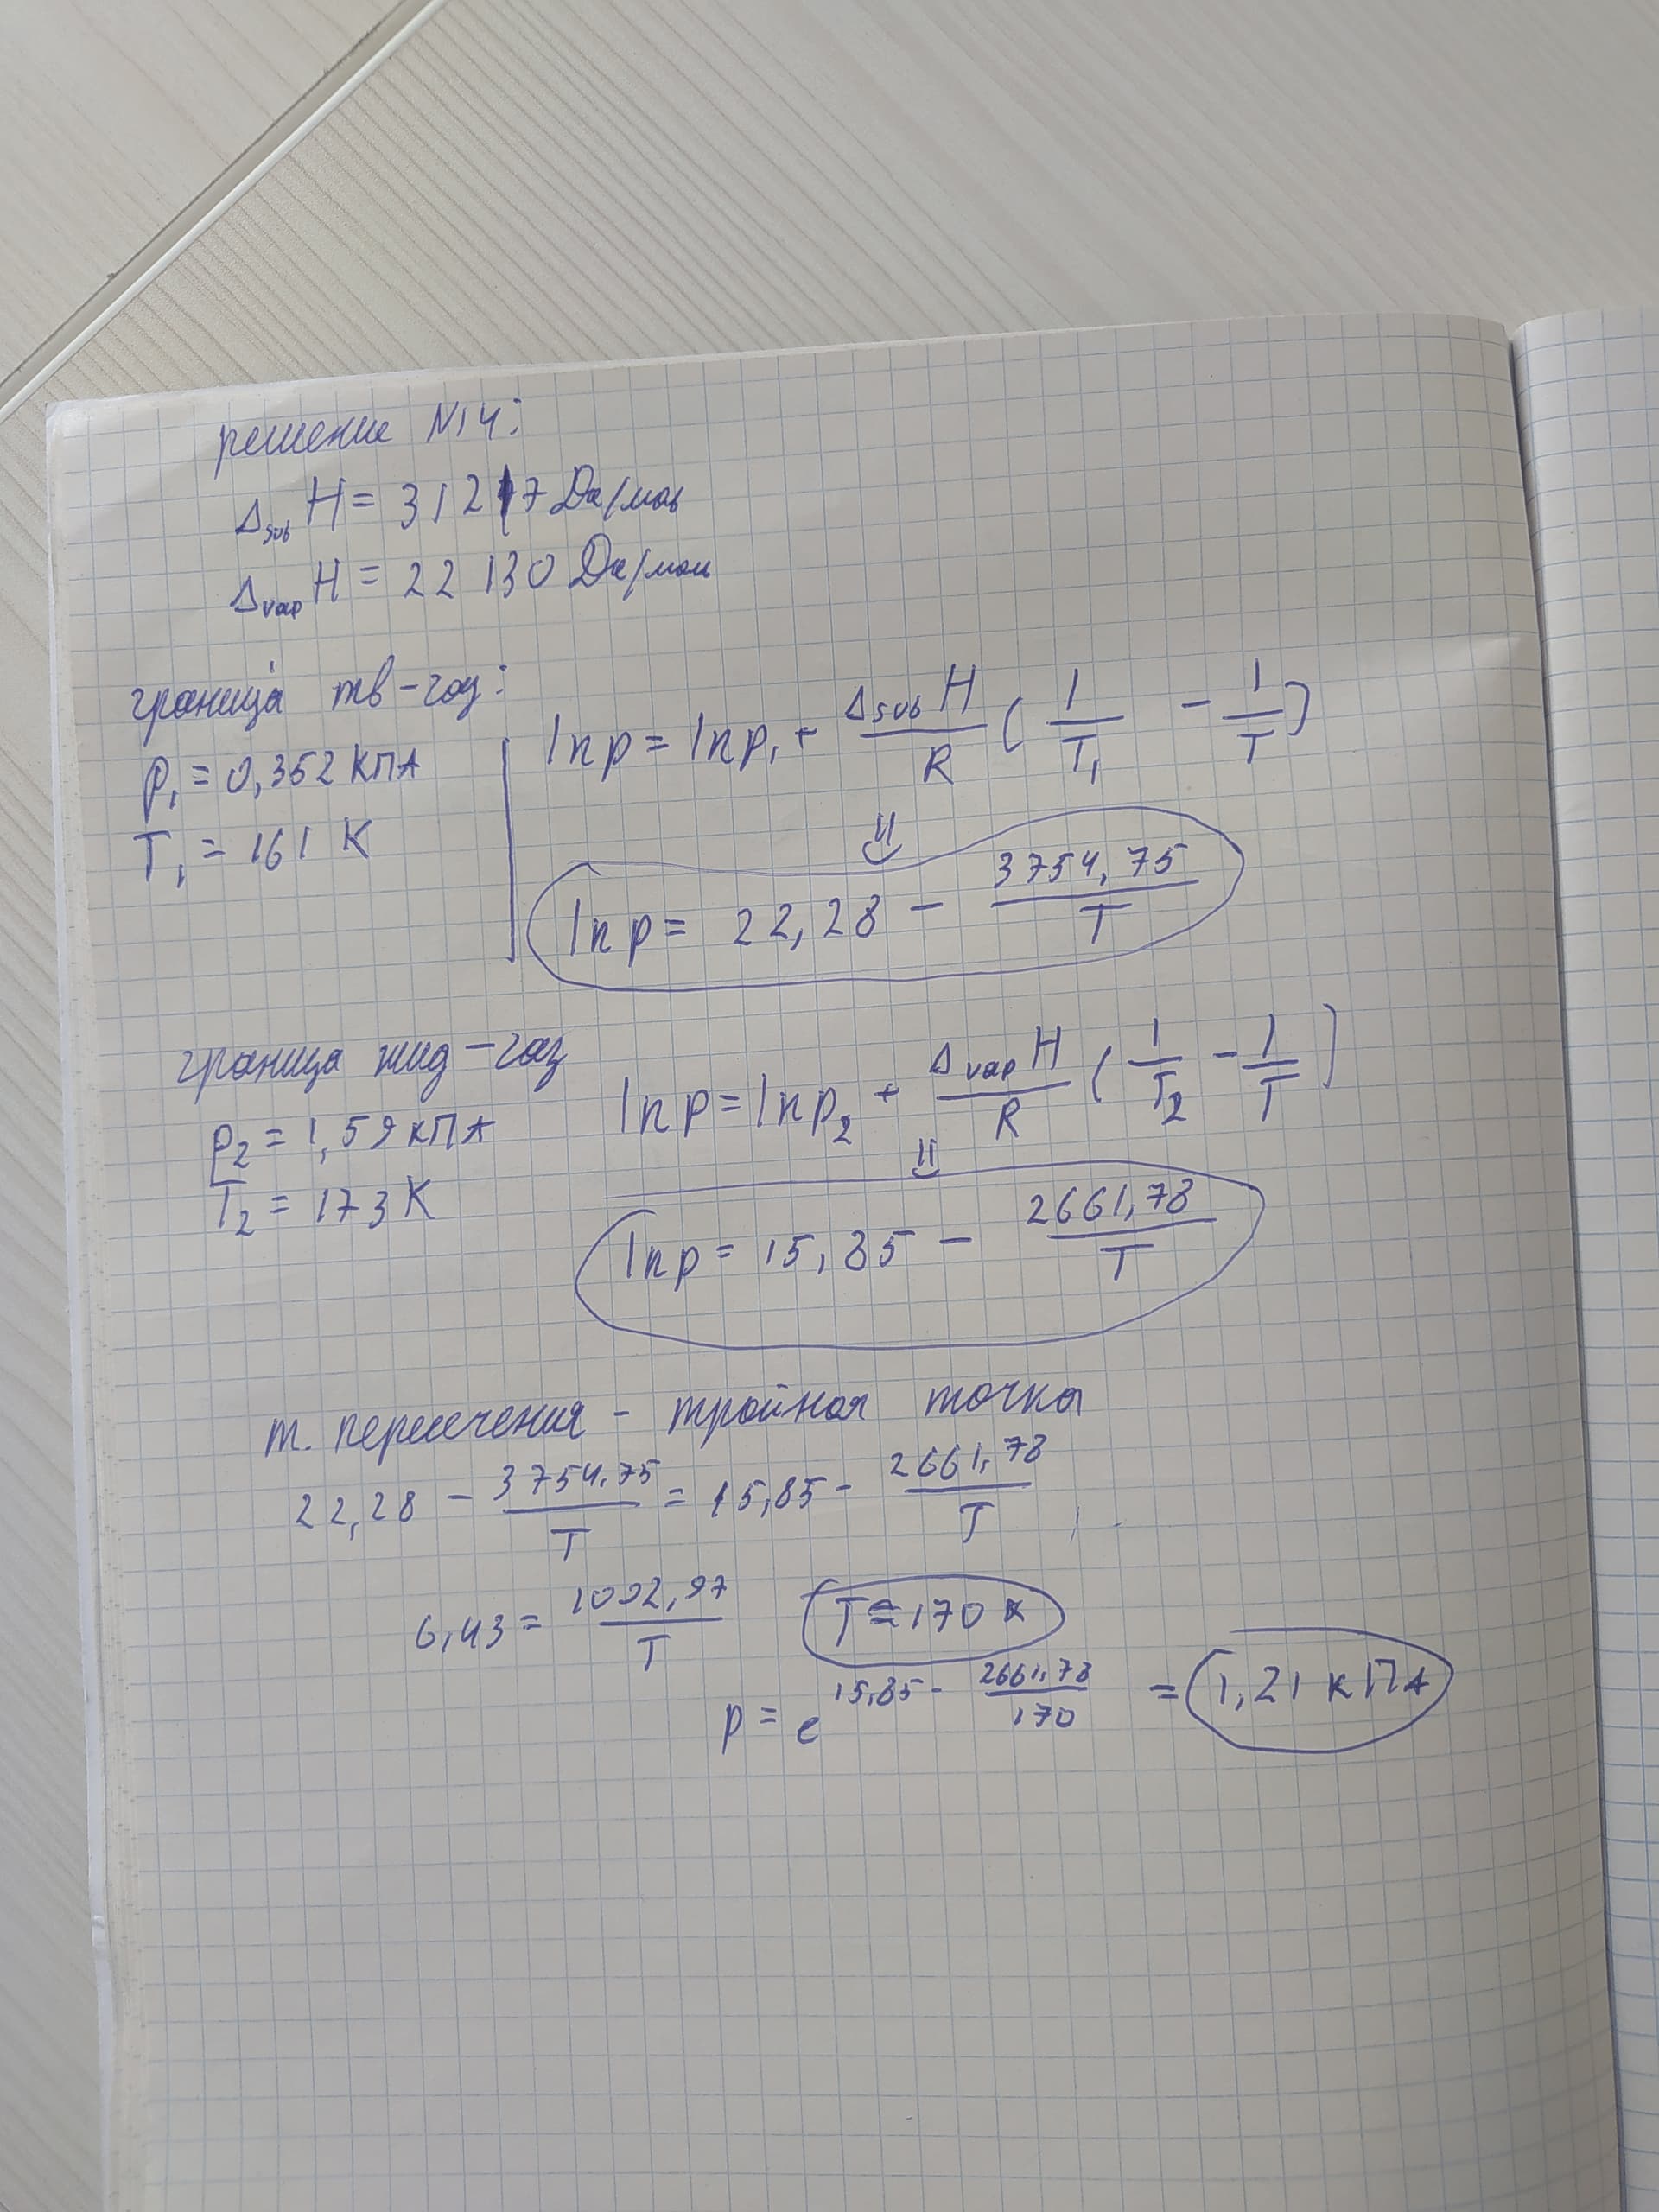 решение N14:
Δsub H = 31217 Дж/моль
Δvap H = 22130 Дж/моль
граница тв-газ:
p₁ = 0,352 кПА
T₁ = 161 K
ln p = ln p₁ + Δsub H / R ( 1/T₁ - 1/T )
ln p = 22,28 - 3754,75 / T
граница жид-газ
p₂ = 1,59 кПА
T₂ = 173 K
ln p = ln p₂ + Δvap H / R ( 1/T₂ - 1/T )
ln p = 15,85 - 2661,78 / T
т. пересечения - тройная точка
22,28 - 3754,75 / T = 15,85 - 2661,78 / T
6,43 = 1092,97 / T
T ≈ 170 K
p = e^(15,85 - 2661,78 / 170) = 1,21 кПА